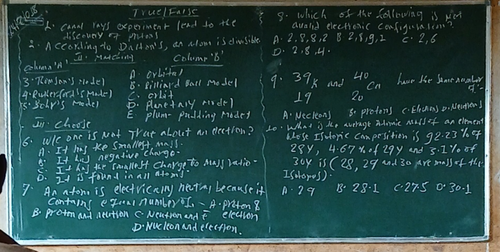 True/False
1. Canal rays experiment lead to the
discovery of proton
2. According to Dalton's, an atom is divisible
II. Matching
Column 'A' Column 'B'
3. Tomson's Model A. Orbital
4. Rutherford's Model B. Billiard Ball Model
5. Bohr's Model C. Orbit
D. Planetary Model
E. plum-pudding Model
III. Choose
6. W/c one is not true about an electron?
A. It has the smallest mass.
B. It has negative charge.
C. It has the smallest charge to mass ratio.
D. It is found in all atoms
7. An atom is electrically neutral because it
contains equal number of:- A. proton &
B. Proton and neutron C. Neutron and E electron
D. Nucleon and electron.
8. Which of the following is not
valid electronic configuration?
A. 2,8,8,2 B 2,8,9,2 C. 2,6
D. 2.8.4.
9. 39 K 19 and 40 Ca 20 have the same number
of:-
A. Nucleons B. protons C. electrons D. Neutrons
10. What is the average atomic mass of an element
whose Isotopic composition is 92.23% of
28Y, 4.67% of 29Y and 3.1% of
30Y is (28, 29 and 30 are mass of the
Isotopes).
A. 29 B. 28.1 C. 27.5 D. 30.1